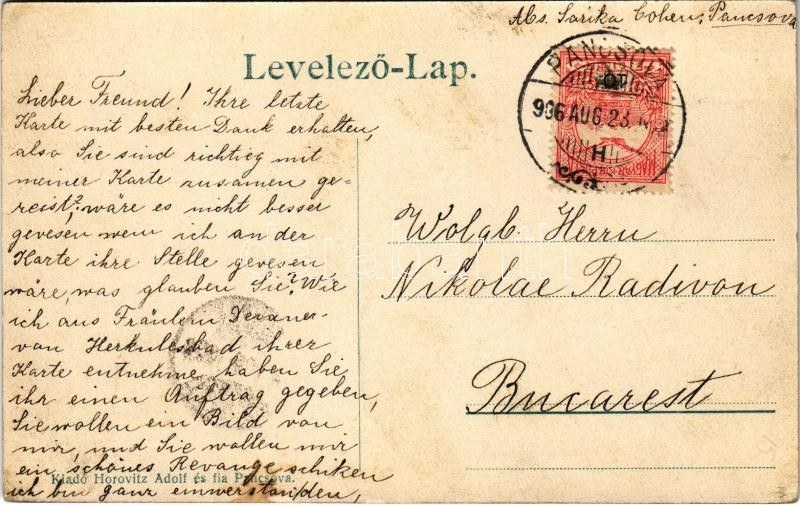 Abs. Sarika Cohen, Pancsova
Levelező-Lap.
PANCSOVA
906 AUG. 23.
H
Lieber Freund! Ihre letzte
Karte mit besten Dank erhalten,
also Sie sind richtieg mit
meiner Karte zusamen ge-
reist? wäre es nicht besser
gevesen wem ich an der
Karte ihre Stelle gevesen
wäre, was glauben Sie? Wie
ich aus Fräulein
van Herkulesbad ihrer
Karte entnehme haben Sie
ihr einen Auftrag gegeben,
Sie wollen ein Bild von
mir, und Sie wollen mir
ein schönes Revange schiken
ich bin ganz einwerstanden,
Kiadó Horovitz Adolf és fia Pancsova.
Wolgb. Herrn
Nikolae Radivon
Bucarest